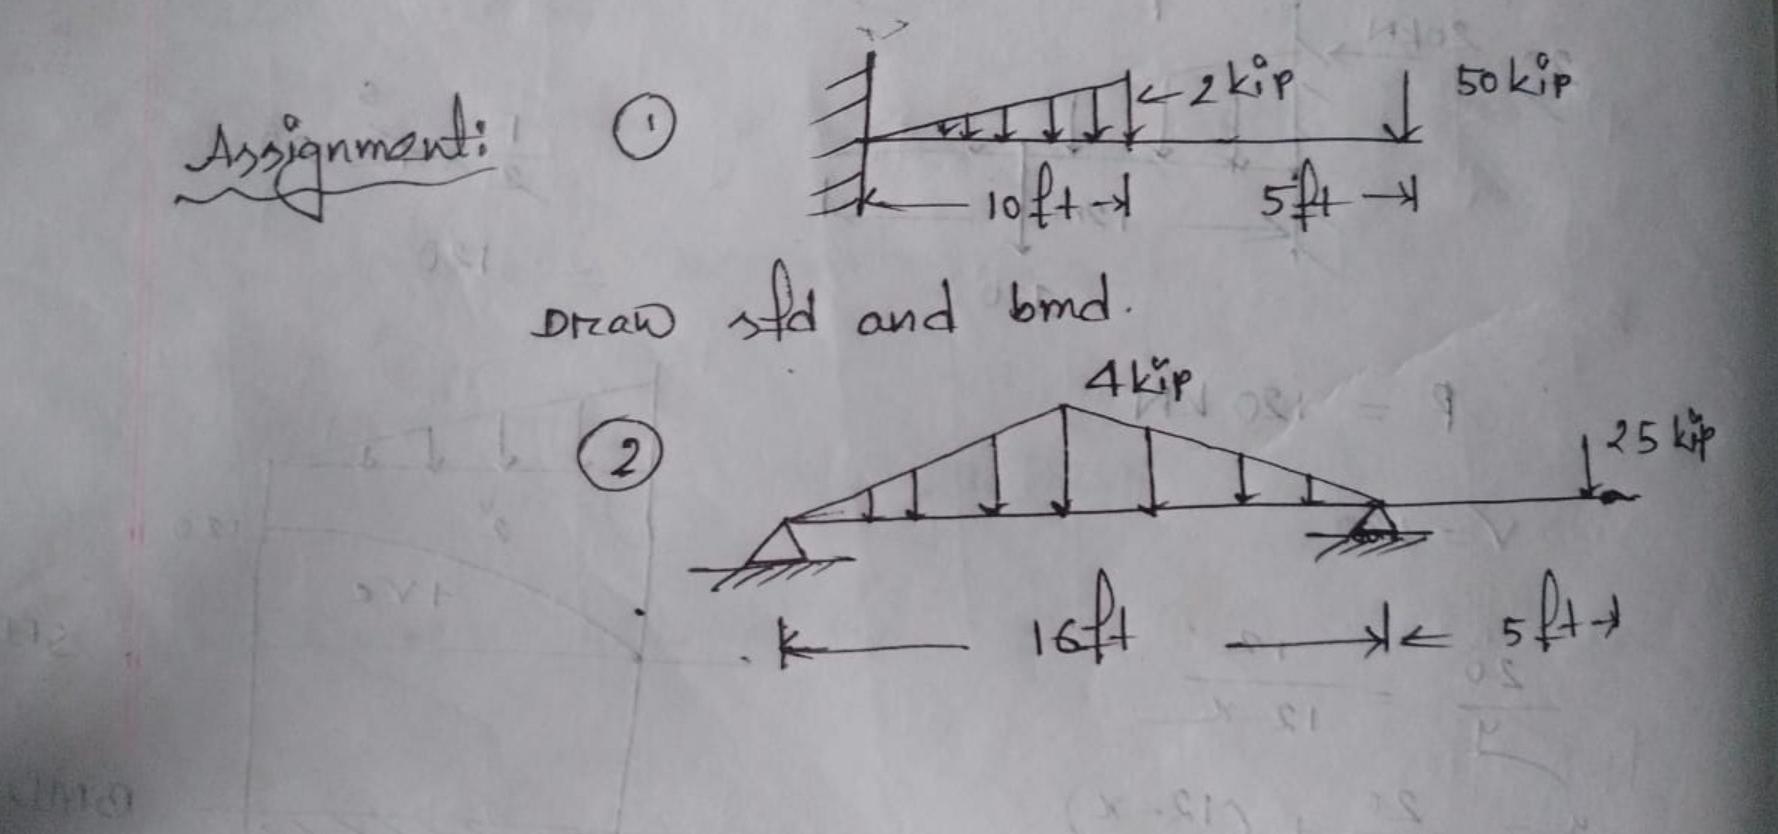 Assignment: 1 2 kip 50 kip
10 ft 5 ft
Draw sfd and bmd.
4 kip
2 25 kip
16 ft 5 ft